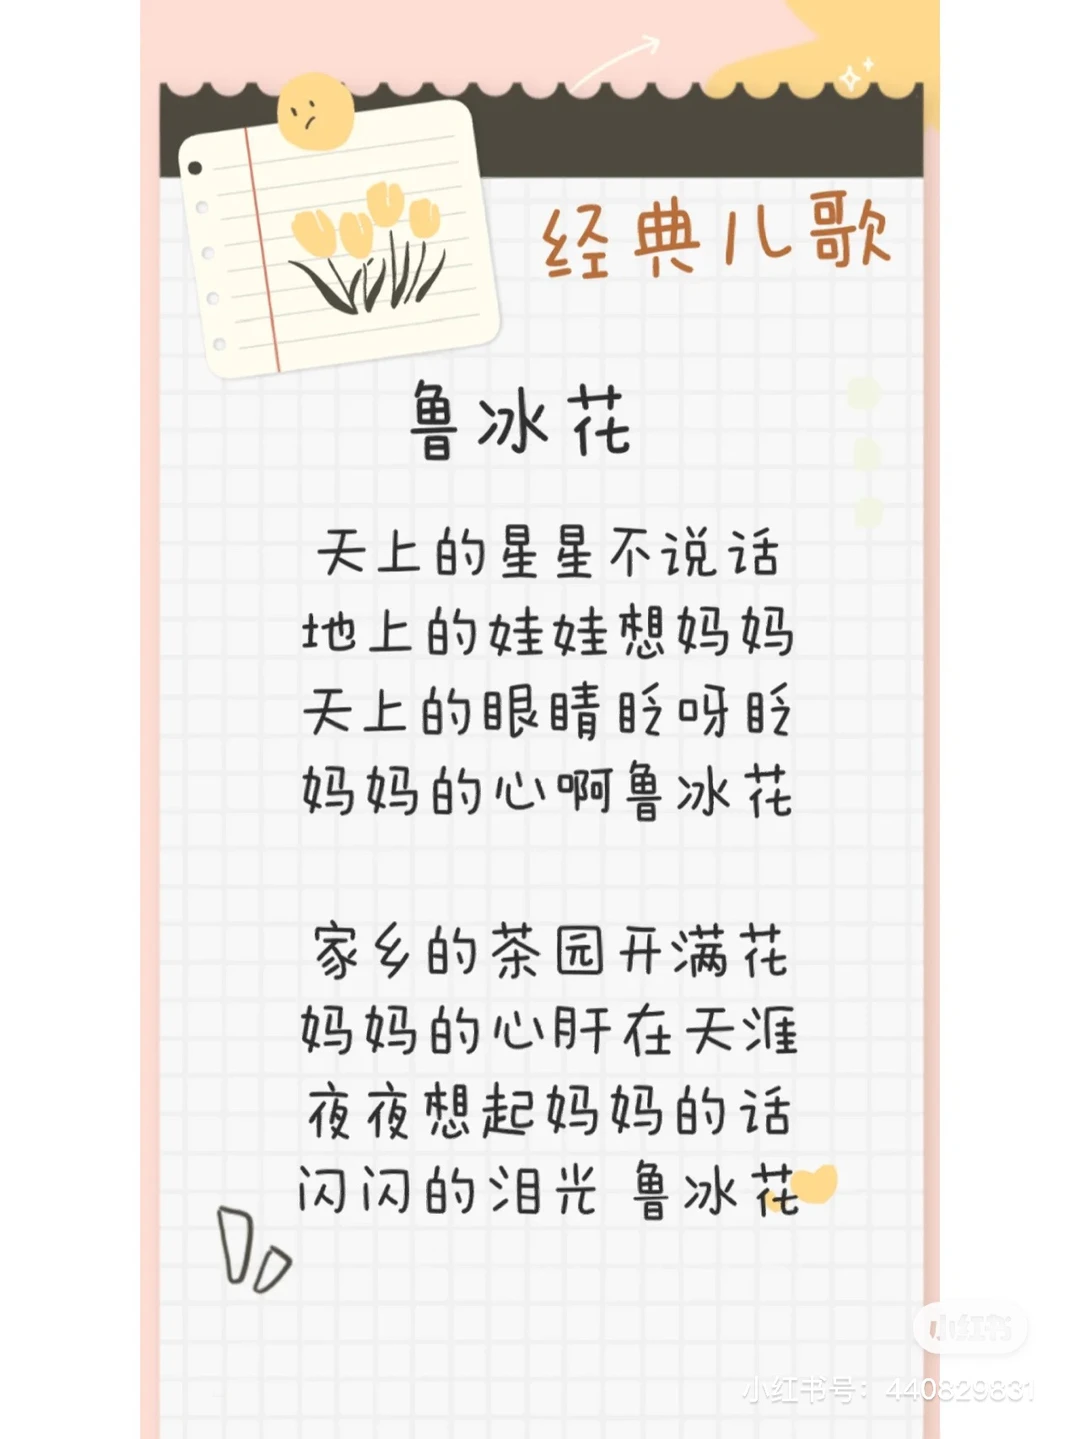 经典儿歌
鲁冰花
天上的星星不说话
地上的娃娃想妈妈
天上的眼睛眨呀眨
妈妈的心啊鲁冰花
家乡的茶园开满花
妈妈的心肝在天涯
夜夜想起妈妈的话
闪闪的泪光 鲁冰花
小红书
小红书号：440829831